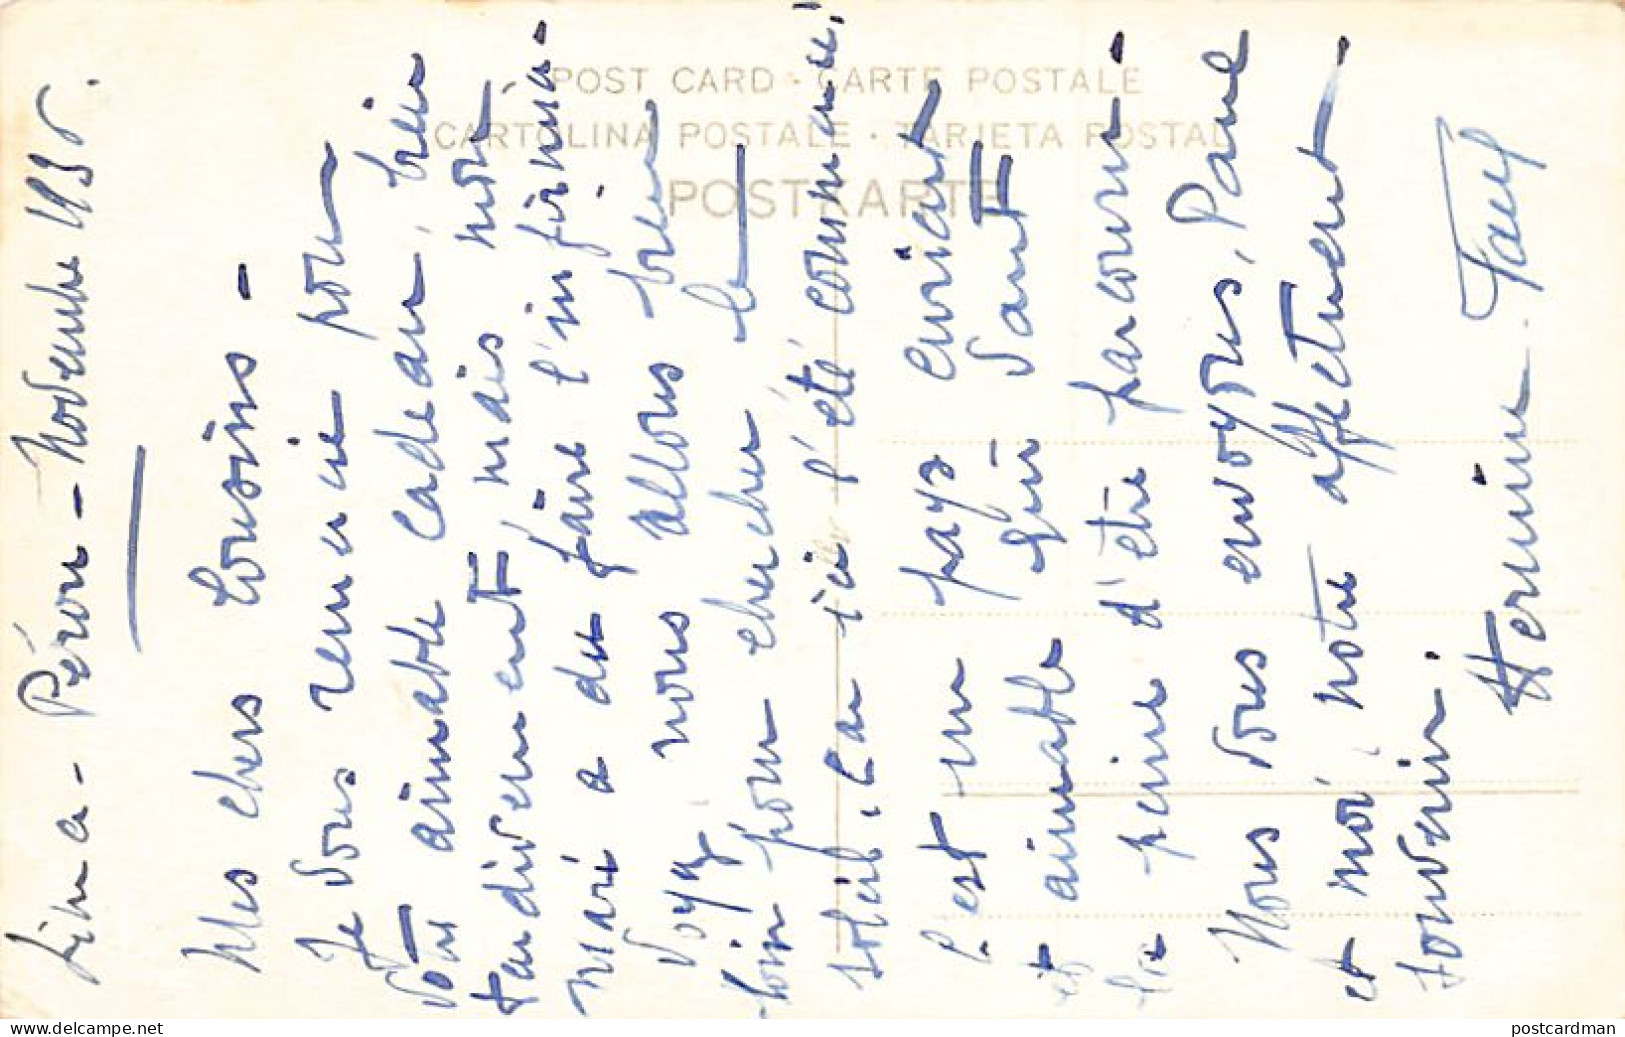 Lima - Pérou - Novembre 195
Mes chers Cousins -
Je vous remercie pour
votre aimable cadeau, bien
tardivement, mais mon
mari a du faire l'infirmia-
Voyez, nous allons bien
loin pour chercher le
soleil, car ici l'été commence!
C'est un pays enviant
et aimable qui vaut
la peine d'être parcouru -
Nous vous envoyons, Paul
et moi, notre affectueux
souvenir.
Hermine Paul
POST CARD · CARTE POSTALE
CARTOLINA POSTALE · TARJETA POSTAL
POSTKARTE
www.delcampe.net
postcardman